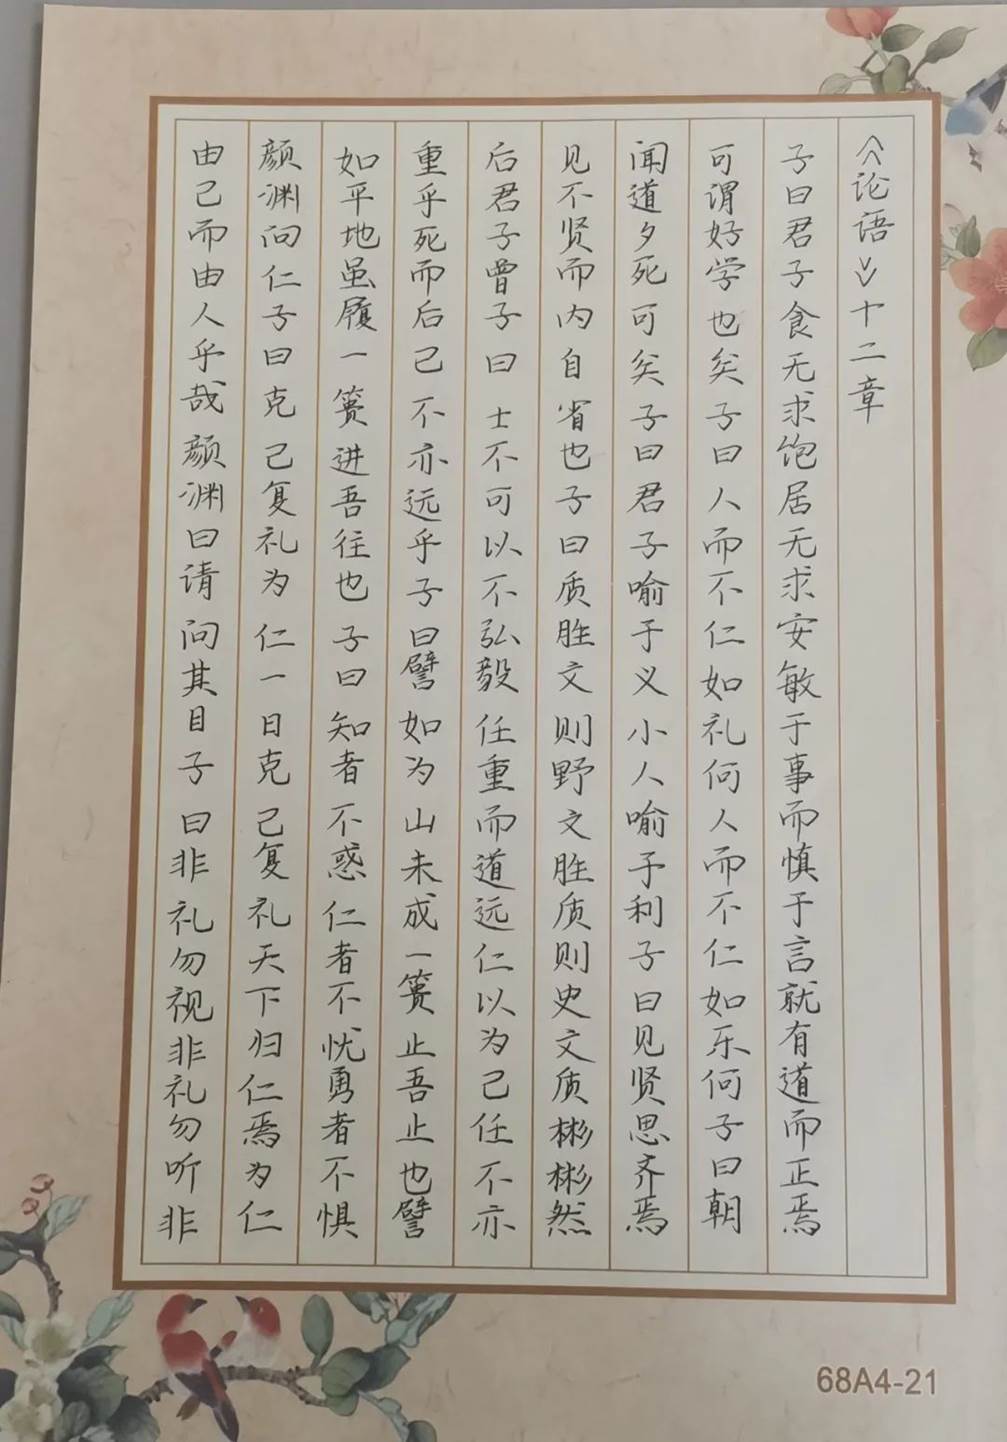 《论语》十二章
子曰君子食无求饱居无求安敏于事而慎于言就有道而正焉
可谓好学也矣子曰人而不仁如礼何人而不仁如乐何子曰朝
闻道夕死可矣子曰君子喻于义小人喻于利子曰见贤思齐焉
见不贤而内自省也子曰质胜文则野文胜质则史文质彬彬然
后君子曾子曰士不可以不弘毅任重而道远仁以为己任不亦
重乎死而后已不亦远乎子曰譬如为山未成一篑止吾止也譬
如平地虽履一篑进吾往也子曰知者不惑仁者不忧勇者不惧
颜渊问仁子曰克己复礼为仁一日克己复礼天下归仁焉为仁
由己而由人乎哉颜渊曰请问其目子曰非礼勿视非礼勿听非
68A4-21